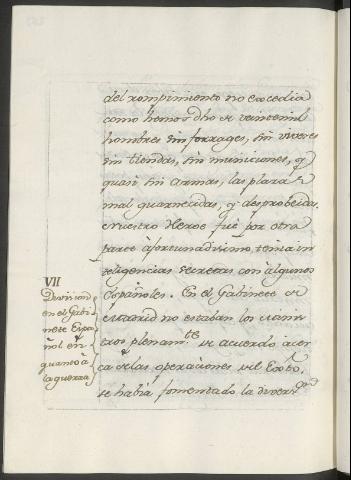 del rompimiento no excedia
como hemos dho de veinte mil
hombres sin forrages, sin viveres
sin tiendas, sin municiones, y
quasi sin armas, las plazas
mal guarnecidas, y desprobeidas.
Nuestro Heroe fue por otra
parte afortunadisimo, tenia in
teligencias secretas con algunos
Españoles. En el Gabinete de
Madrid no estaban los Minis
tros plenam.te de acuerdo acer
ca de las operaciones del Exto,
se habia fomentado la divers
VII
Division
en el Gabi
nete Espa
ñol en
quanto à
la guerra